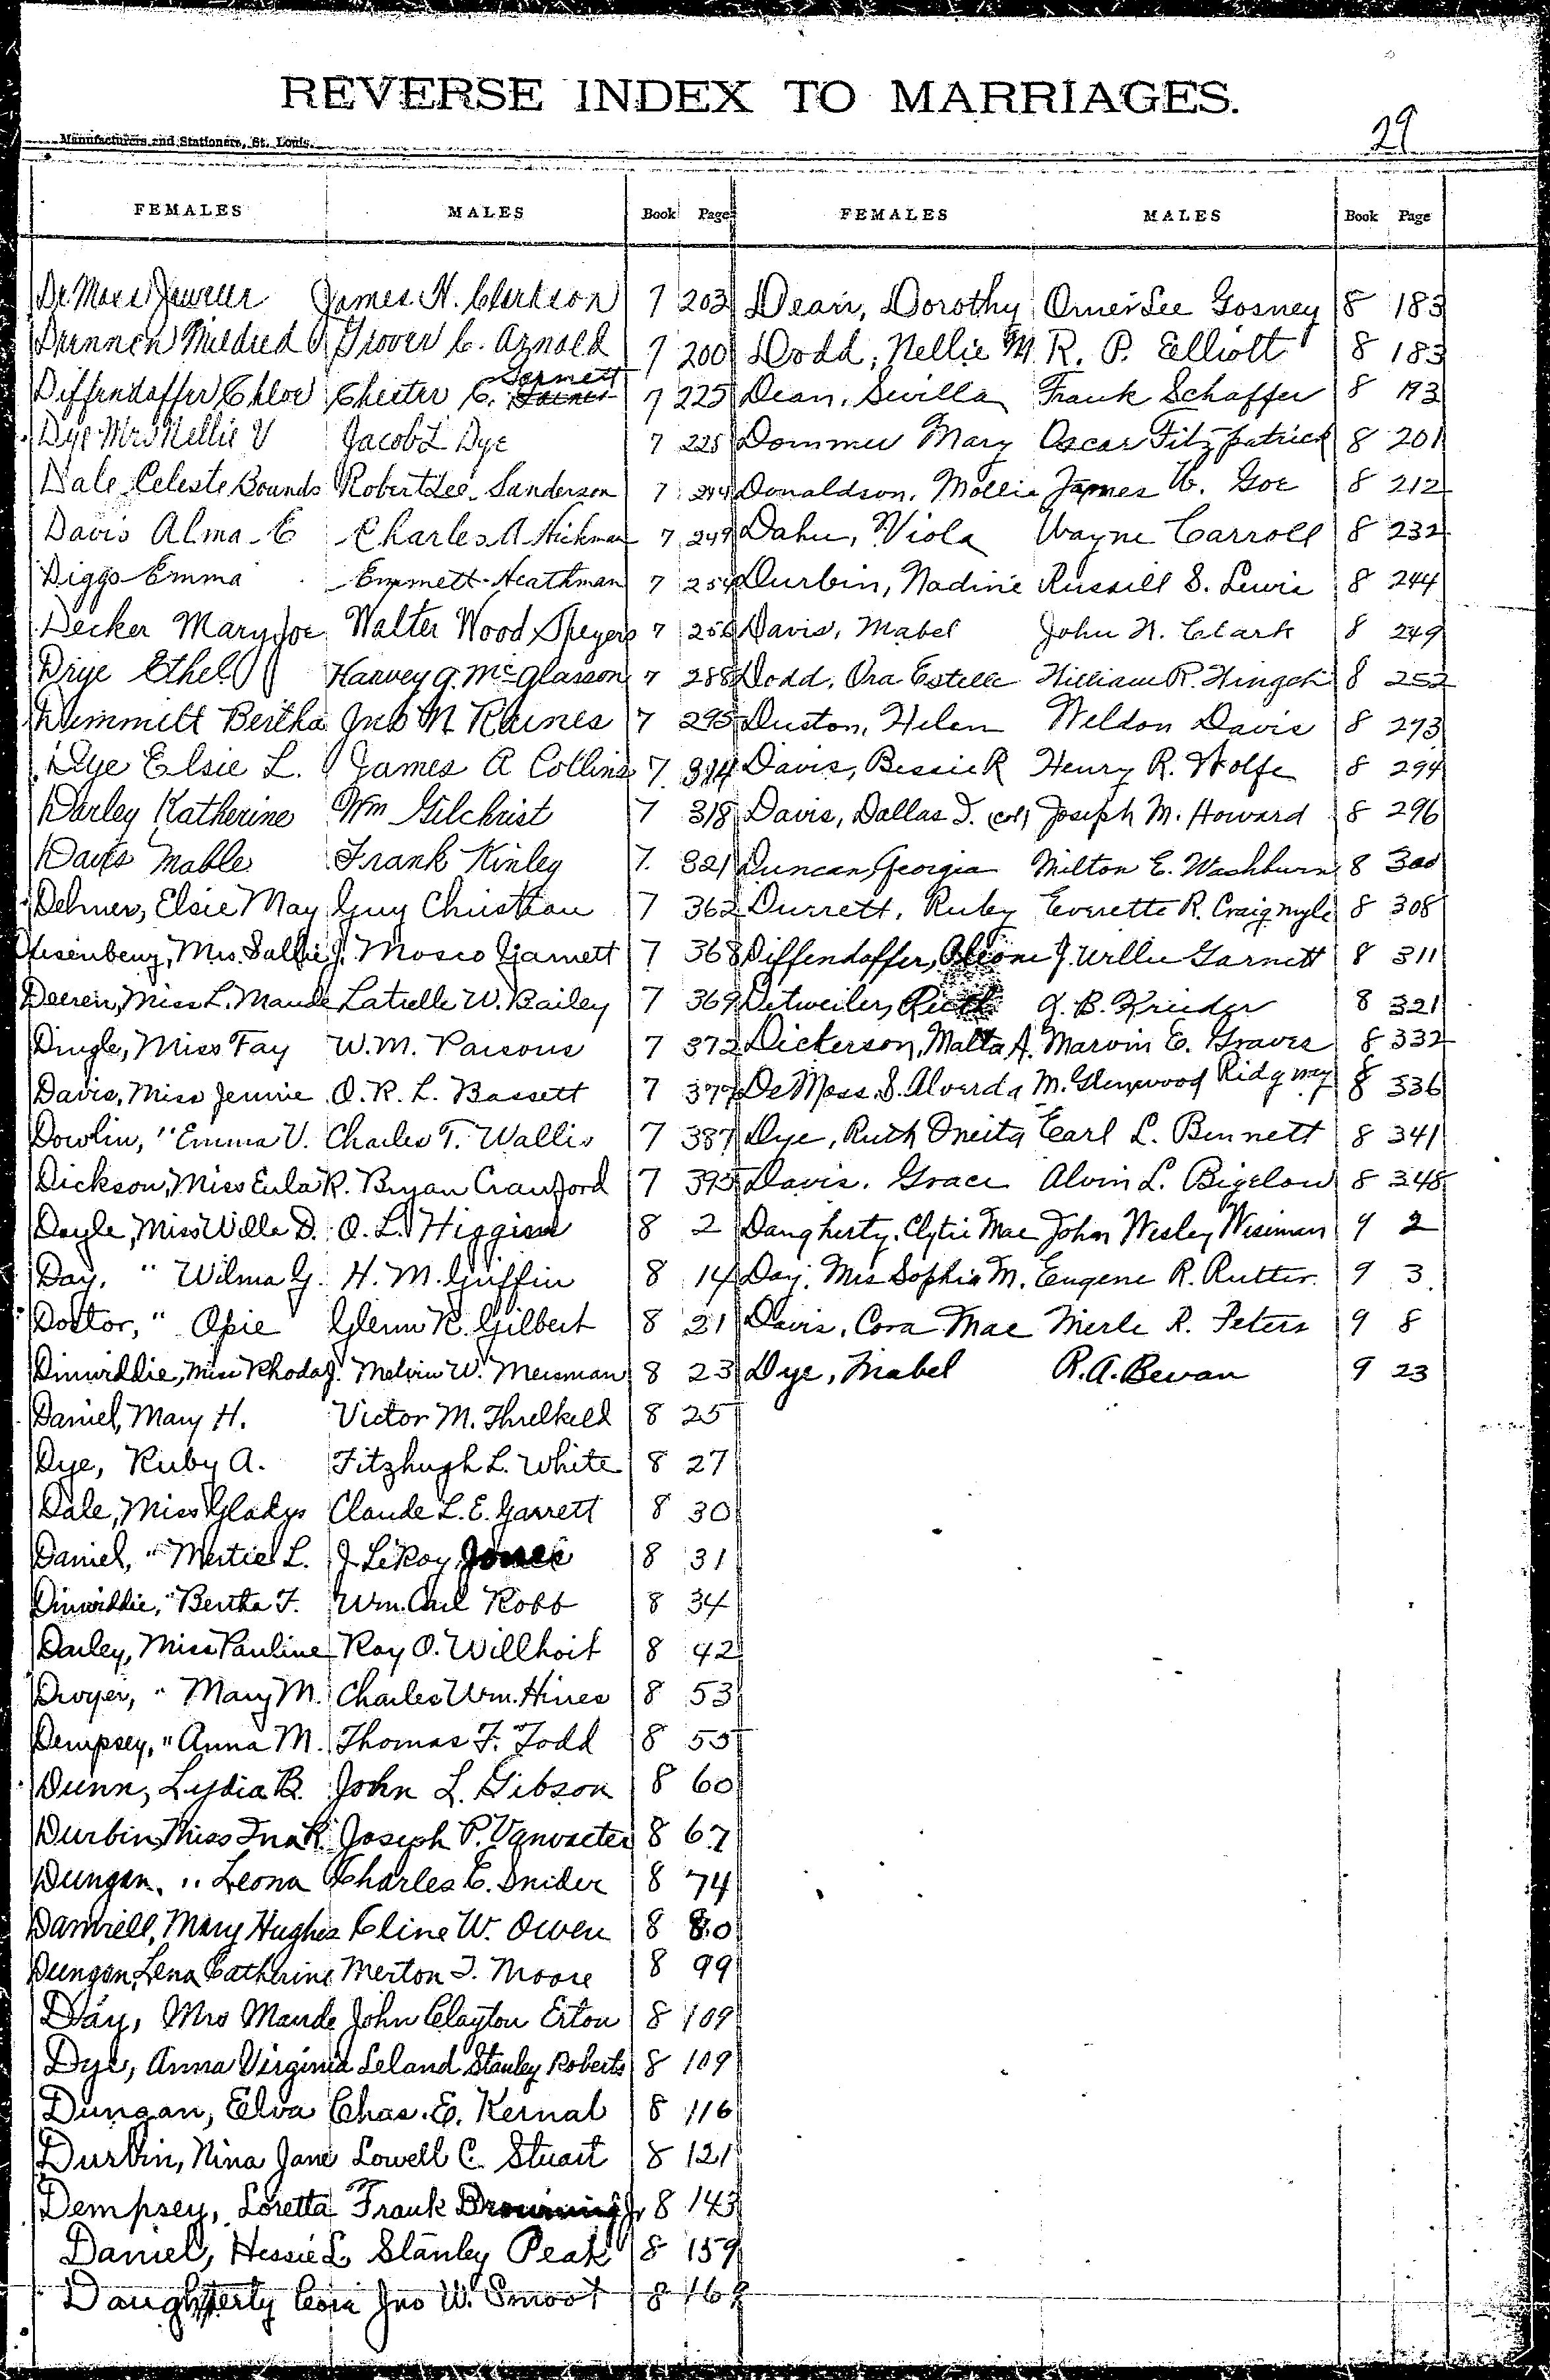 REVERSE INDEX TO MARRIAGES.
29
Manufacturers and Stationers, St. Louis.
FEMALES MALES Book Page FEMALES MALES Book Page
DeMoss Jewell James H. Clarkson 7 203
Drennen Mildred Grover C. Arnold 7 200
Diffendaffer Chloe Chester C. Garnett 7 225
Dye Mrs Nellie V Jacob L Dye 7 225
Dale Celeste Bounds Robert Lee Sanderson 7 244
Davis Alma E Charles A Hickman 7 249
Diggs Emma Emmett Heathman 7 254
Decker Mary Joe Walter Wood Speyers 7 256
Drye Ethel Harvey G. McGlasson 7 288
Dimmett Bertha Jno M Raines 7 295
Dye Elsie L. James A Collins 7 314
Darley Katherine Wm Gilchrist 7 318
Davis Mable Frank Kinley 7 321
Dehner, Elsie May Guy Christian 7 362
Mrs. Sallie J. Mosco Garnett 7 368
Deeren, Miss L. Maude Latielle W. Bailey 7 369
Dingle, Miss Fay W. M. Parsons 7 372
Davis, Miss Jennie O. R. L. Bassett 7 377
Dowlin, " Emma V. Charles T. Wallis 7 387
Dickson, Miss Eula R. Bryan Crawford 7 395
Doyle, Miss Willa D. O. L. Higgins 8 2
Day, " Wilma G. H. M. Griffin 8 14
Doctor, " Opie Glenn R. Gilbert 8 21
Dinwiddie, Miss Rhoda J. Melvin W. Meisman 8 23
Daniel, Mary H. Victor M. Threlkeld 8 25
Dye, Ruby A. Fitzhugh L. White 8 27
Dale, Miss Gladys Claude L. E. Garrett 8 30
Daniel, " Mertie L. J LeRoy Jones 8 31
Dinwiddie, " Bertha F. Wm. Carl Robb 8 34
Dailey, Miss Pauline Roy O. Willhoit 8 42
Dwyer, " Mary M. Charles Wm. Hines 8 53
Dempsey, " Anna M. Thomas F. Todd 8 55
Dunn, Lydia B. John L. Gibson 8 60
Durbin, Miss Ina R. Joseph P. Vanvacter 8 67
Dungan, " Leona Charles E. Snider 8 74
Damrell, Mary Hughes Cline W. Owen 8 80
Dungan, Lena Catherine Merton T. Moore 8 99
Day, Mrs Maude John Clayton Erton 8 109
Dye, Anna Virginia Leland Stanley Roberts 8 109
Dungan, Elva Chas. E. Kernal 8 116
Durbin, Nina Jane Lowell C. Stuart 8 121
Dempsey, Loretta Frank Browning Jr 8 143
Daniel, Hessie L Stanley Peak 8 159
Daugherty Cora Jno W. Smoot 8 169
Dean, Dorothy Omer Lee Gosney 8 183
Dodd, Nellie M. R. P. Elliott 8 183
Dean, Sevilla Frank Schaffer 8 193
Dommer Mary Oscar Fitzpatrick 8 201
Donaldson, Mollie James W. Goe 8 212
Dahu, Viola Wayne Carroll 8 232
Durbin, Nadine Russell S. Lewis 8 244
Davis, Mabel John N. Clark 8 249
Dodd, Ora Estelle William R. 8 252
Duston, Helen Weldon Davis 8 273
Davis, Bessie R Henry R. Wolfe 8 294
Davis, Dallas T. (col) Joseph M. Howard 8 296
Duncan, Georgia Milton E. Washburn 8 300
Durrett, Ruby Everette R. Craigmyle 8 308
Diffendaffer, J. Willie Garnett 8 311
Detweiler, Ruth G. B. Krieder 8 321
Dickerson, Malta A. Marvin E. Graves 8 332
DeMoss, S. Alverda M. Glenwood Ridgway 8 336
Dye, Ruth Oneita Earl L. Bennett 8 341
Davis, Grace Alvin L. Bigelow 8 348
Daugherty, Clytie Mae John Wesley Wiseman 9 2
Day, Mrs Sophia M. Eugene R. Rutter 9 3
Davis, Cora Mae Merle R. Peters 9 8
Dye, Mabel R. A. Bevan 9 23